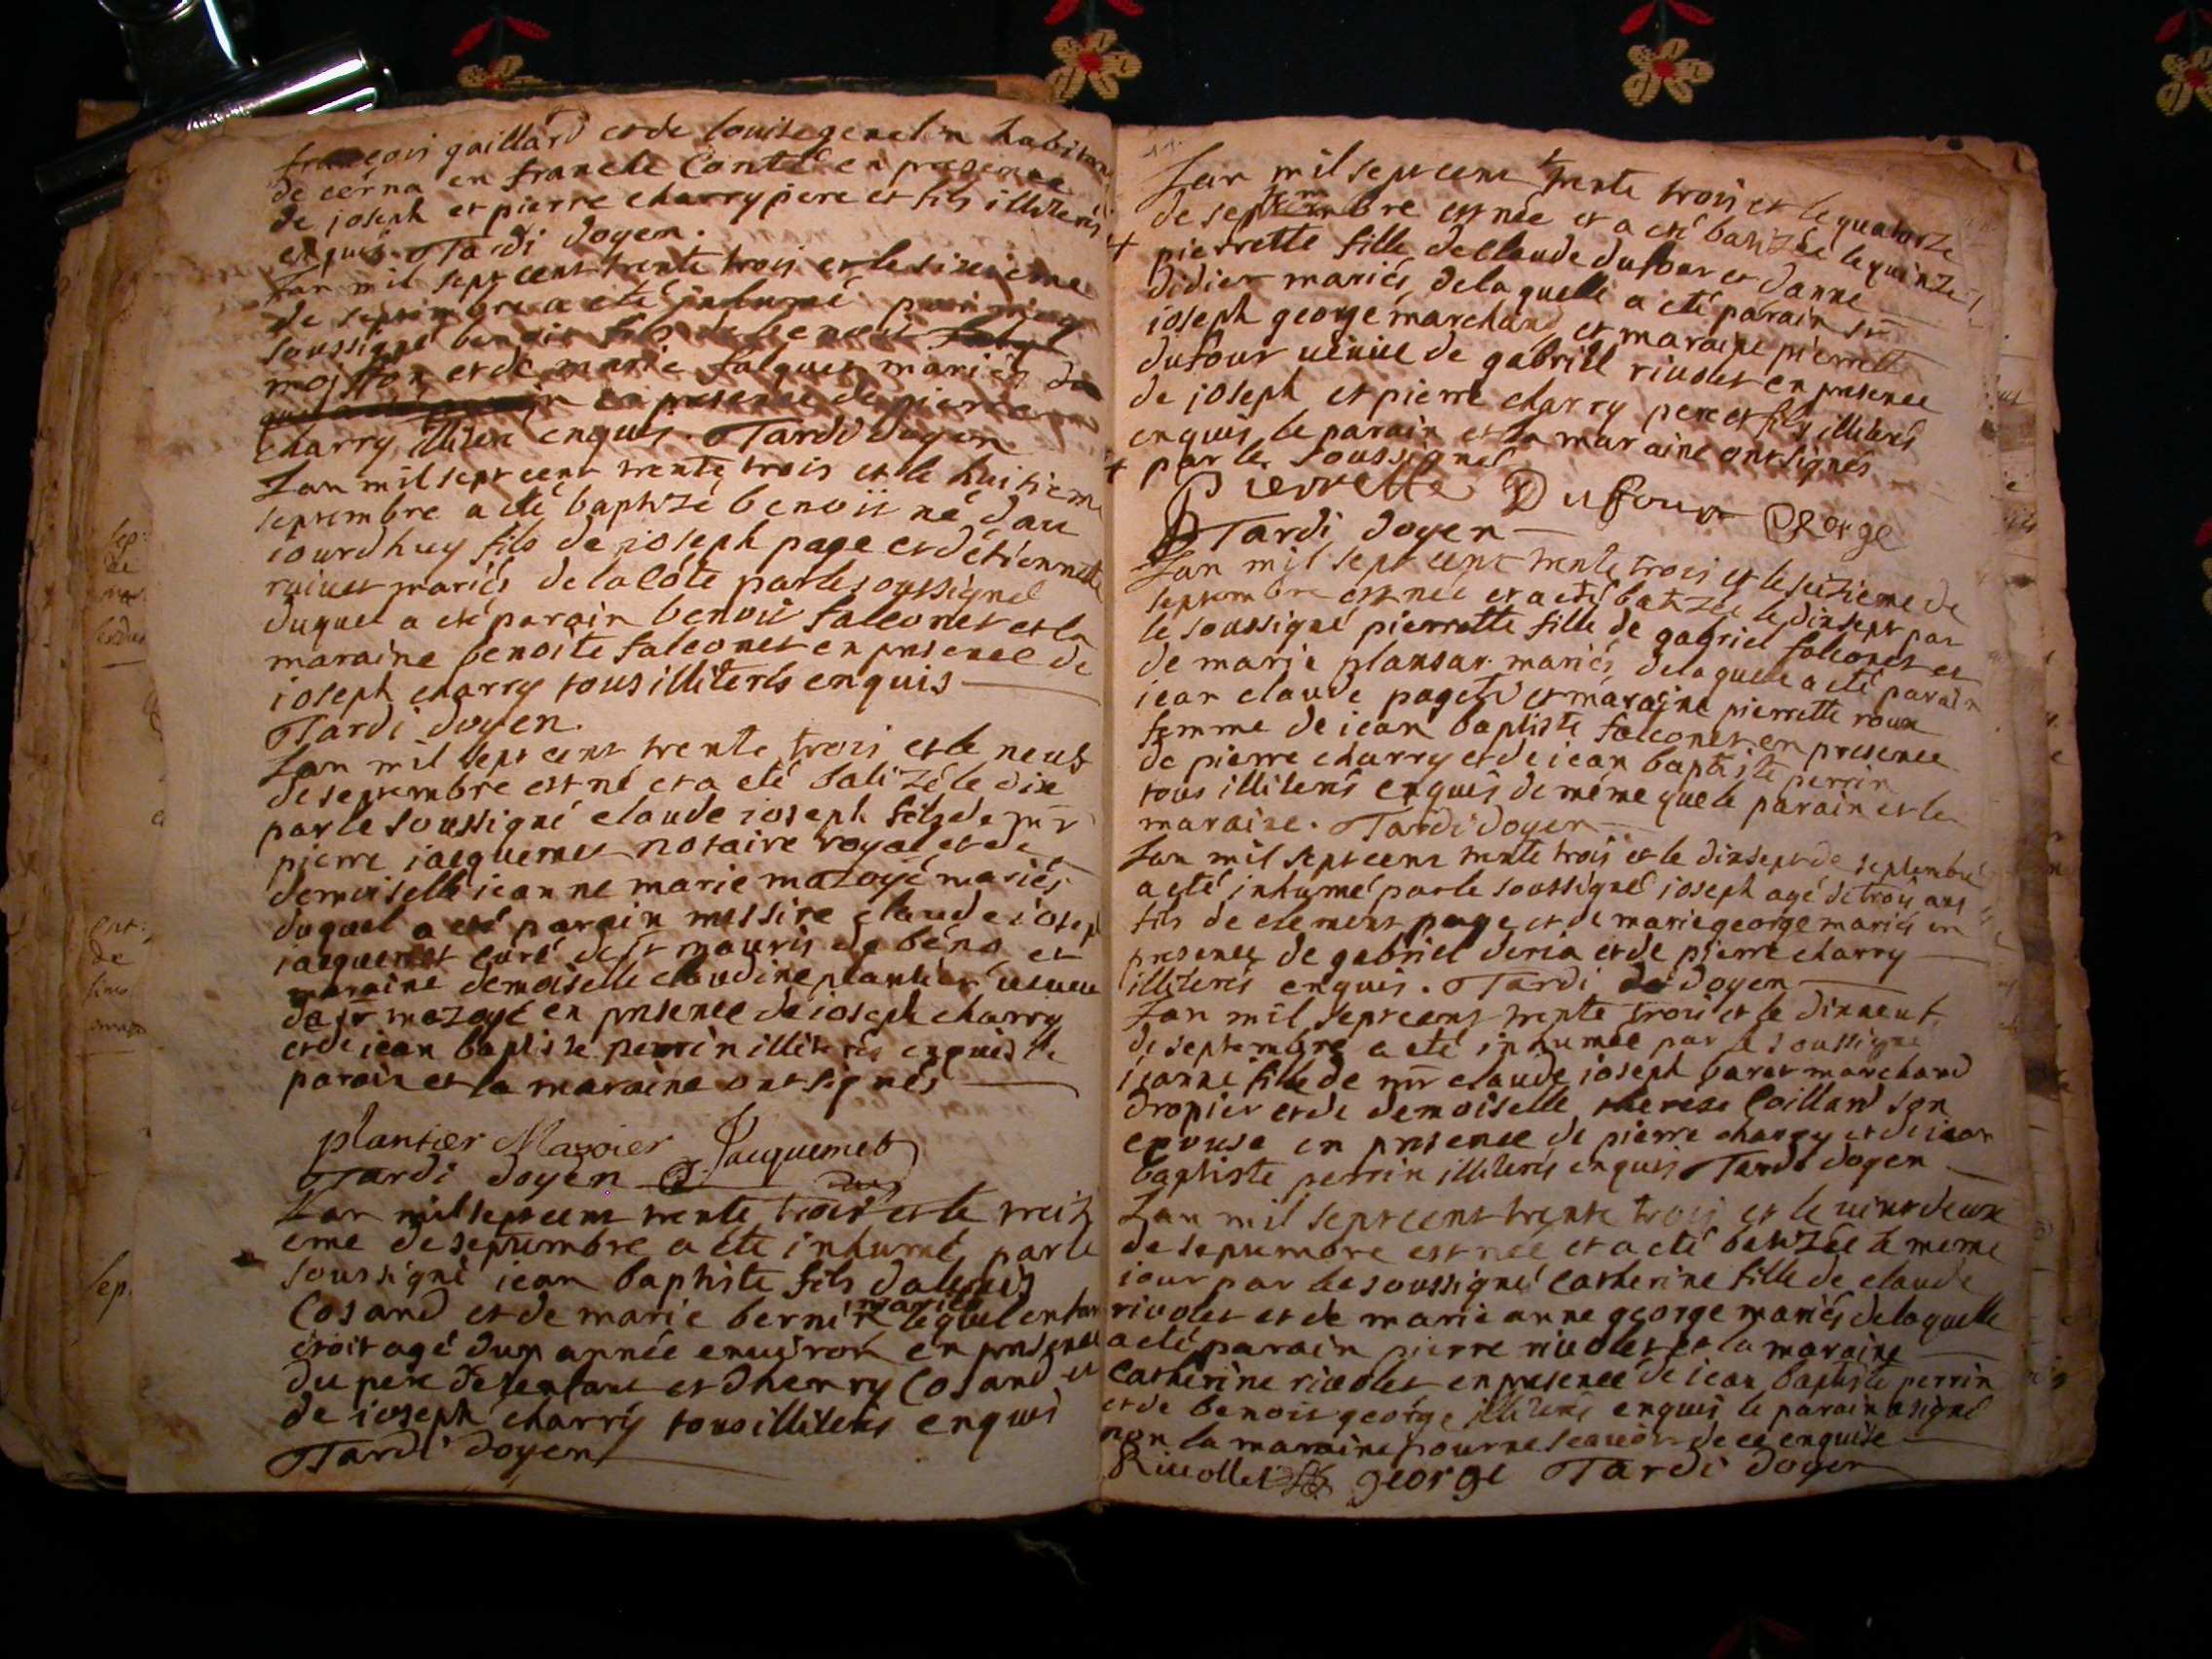 francois gaillard et de louise genelin habitans
de cerna en franche Conté en presence
de joseph et pierre charry pere et fils illiterés
enquis. Tardi doyen.
Lan mil sept cent trente trois et le sixieme
de septembre a eté inhumé par moy
soussigné benoit fils de benoit
moisson et de marie falquet mariés
en presence de pierre
charry illiteré enquis. Tardi doyen
Lan mil sept cent trente trois et le huitieme
septembre a eté baptizé benoit né dau
iourdhuy fils de joseph page et détiennette
mariés de la côte par le soussigné
duquel a eté parain benoit falconet et la
maraine benoite falconet en presence de
joseph charry tous illiterés enquis
Tardi doyen.
Lan mil sept cent trente trois et le neuf
de septembre est né et a eté batizé le dix
par le soussigné claude joseph fils de mr
pierre jacquemet notaire royal et de
demoiselle jeanne marie mazoyé mariés
duquel a eté parain messire claude josep
jacquemet curé de st mauris de béno et
maraine demoiselle claudine plantier veuve
de sr mazoyé en presence de joseph charry
et de jean baptiste perrin illiterés enquis le
parain et la maraine ont signés
plantier Mazoier Jacquemet
Tardi doyen
Lan mil sept cent trente trois et le treiz
eme de septembre a eté inhumé par le
soussigné jean baptiste fils dalexis
Cosand et de marie bernin mariés lequel enfant
étoit agé dun année environ en presence
du pere de lenfant et dhenry Cosand et
de joseph charry tous illiterés enquis
Tardi doyen
Lan mil sept cent trente trois et le quatorze
de septembre est née et a eté batizée le quinze
+ pierrette fille de Claude dufour et danne
didier mariés, de la quelle a eté parain sr
joseph george marchand et maraine pierrette
dufour veuve de gabriel rivolet en presence
de joseph et pierre charry pere et fils illiterés
enquis le parain et la maraine ont signés
+ par le soussigné
Pierrette Dufour George
Tardi doyen
Lan mil sept cent trente trois et le seizieme de
septembre est née et a eté batizée le dixsept par
le soussigné pierrette fille de gabriel falconet et
de marie plansar mariés, de la quelle a eté parain
jean claude paget et maraine pierrette roux
femme de jean baptiste falconet en presence
de pierre charry et de jean baptiste perrin
tous illiterés enquis de même que le parain et la
maraine. Tardi doyen
Lan mil sept cent trente trois et le dixsept de septembre
a eté inhumé par le soussigné joseph agé de trois ans
fils de clement page et de marie george mariés en
presence de gabriel deria et de pierre charry
illiterés enquis. Tardi doyen
Lan mil sept cent trente trois et le dixneuf
de septembre a eté inhumée par le soussigné
jeanne fille de mr claude joseph baret marchand
drapier et de demoiselle therese Coilland son
epouse en presence de pierre charry et de jean
baptiste perrin illiterés enquis Tardi doyen
Lan mil sept cent trente trois et le vint deux
de septembre est née et a eté batizée le meme
jour par le soussigné Catherine fille de claude
rivolet et de marie anne george mariés de la quelle
a eté parain pierre rivolet et la maraine
Catherine rivolet en presence de jean baptiste perrin
et de benoit george illiterés enquis le parain a signé
non la maraine pour ne scavoir de ce enquise
Rivollet george Tardi doyen